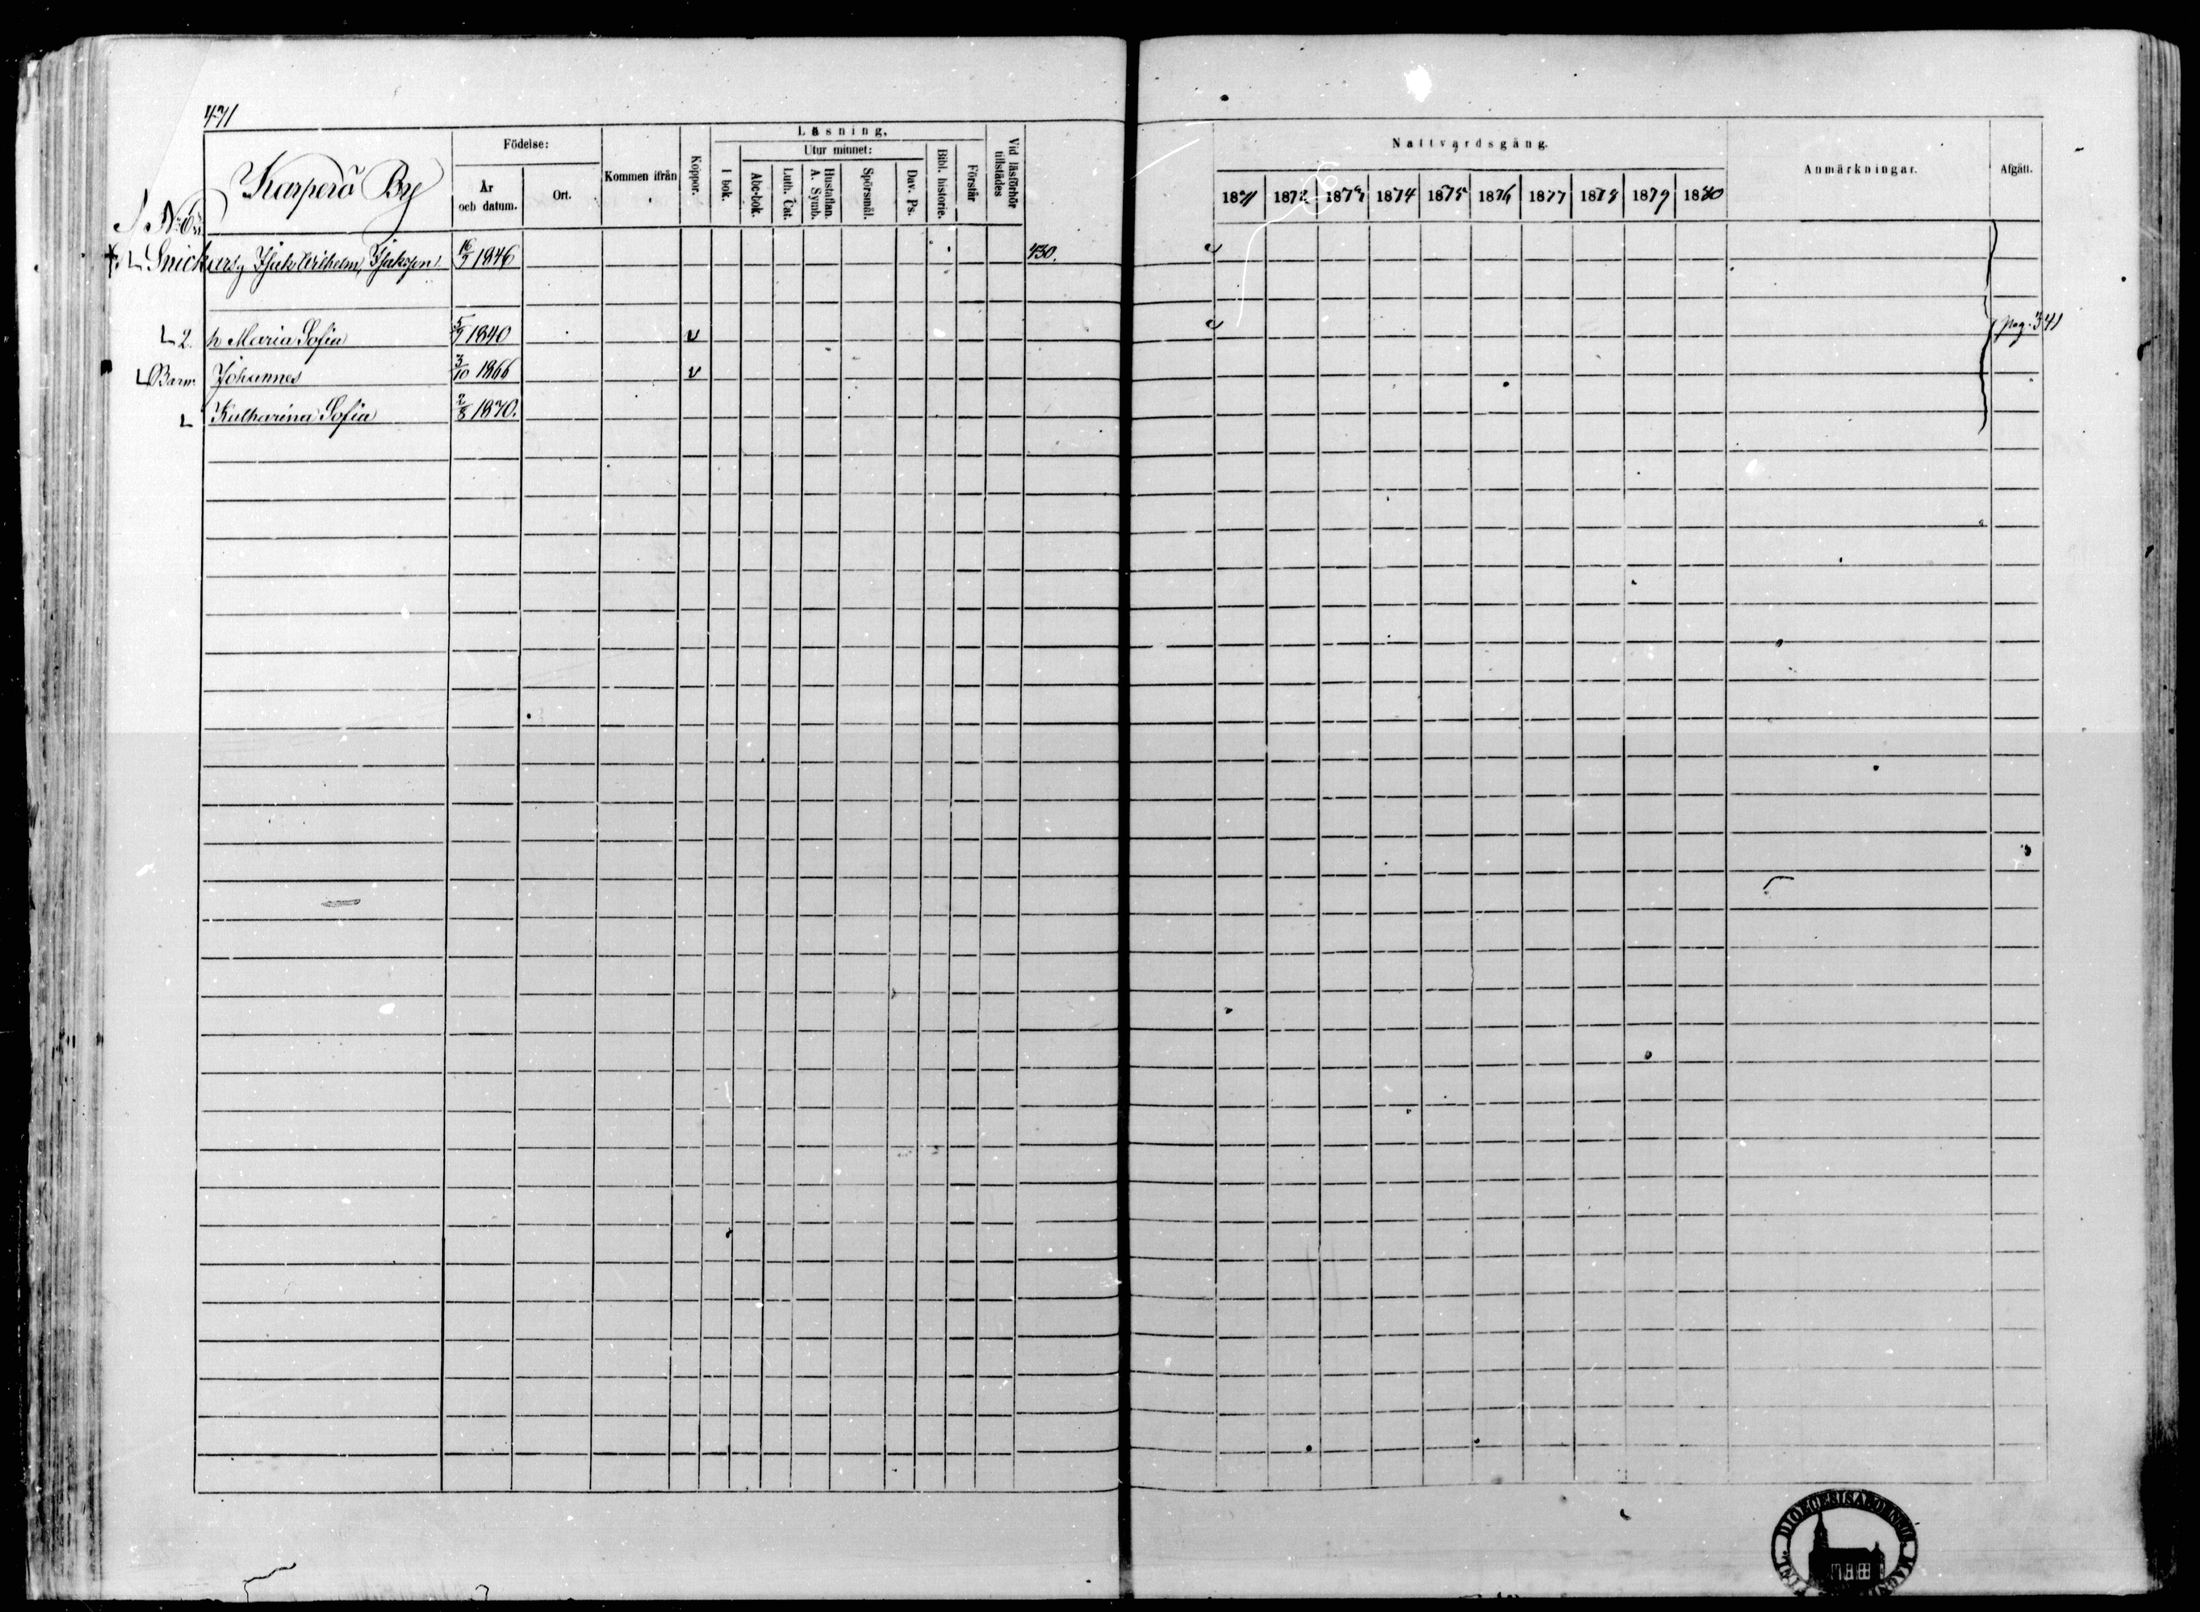 471
Karperö By
Födelse:
År och datum.
Ort.
Kommen ifrån
Koppor.
Läsning,
I bok.
Utur minnet:
Abc-bok.
Luth. Cat.
Hustaflan. A. Symb.
Spörsmål.
Dav. Ps.
Bibl. historie.
Förstår
Vid läsförhör tillstädes
Nattvardsgång.
1871 1872 1873 1874 1875 1876 1877 1878 1879 1880
Anmärkningar.
Afgått.
Isak Wilhelm 1846 430.
2. h Maria Sofia 5/9 1840 v pag. 341
Barn: Johannes 3/10 1866 v
Katharina Sofia 2/8 1870.